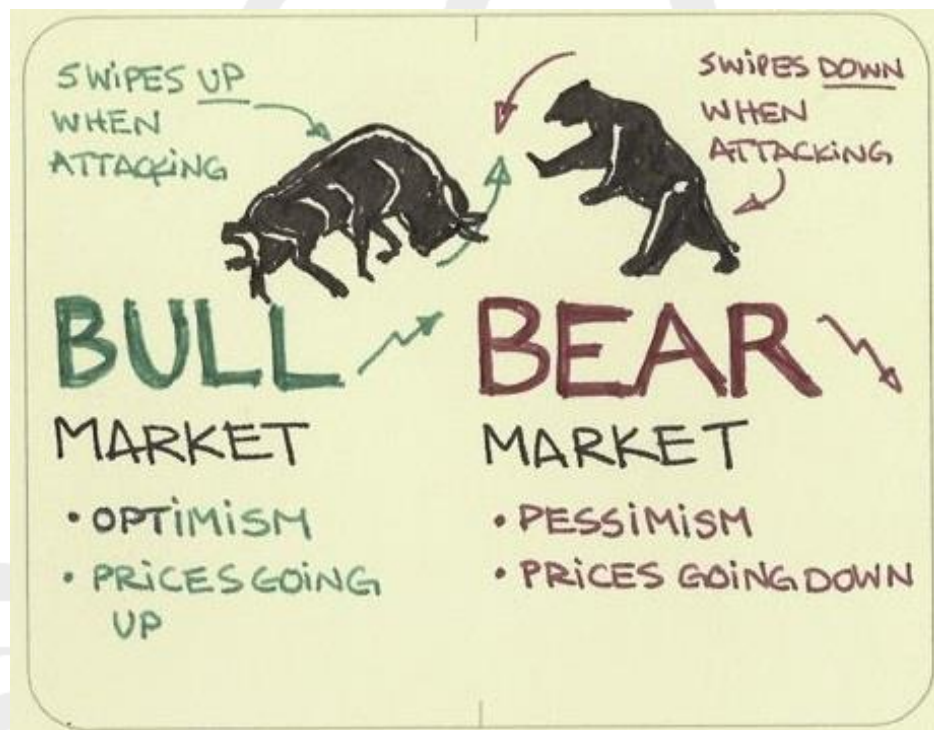 SWIPES UP
WHEN
ATTACKING
BULL
MARKET
• OPTIMISM
• PRICES GOING
UP
SWIPES DOWN
WHEN
ATTACKING
BEAR
MARKET
• PESSIMISM
• PRICES GOING DOWN